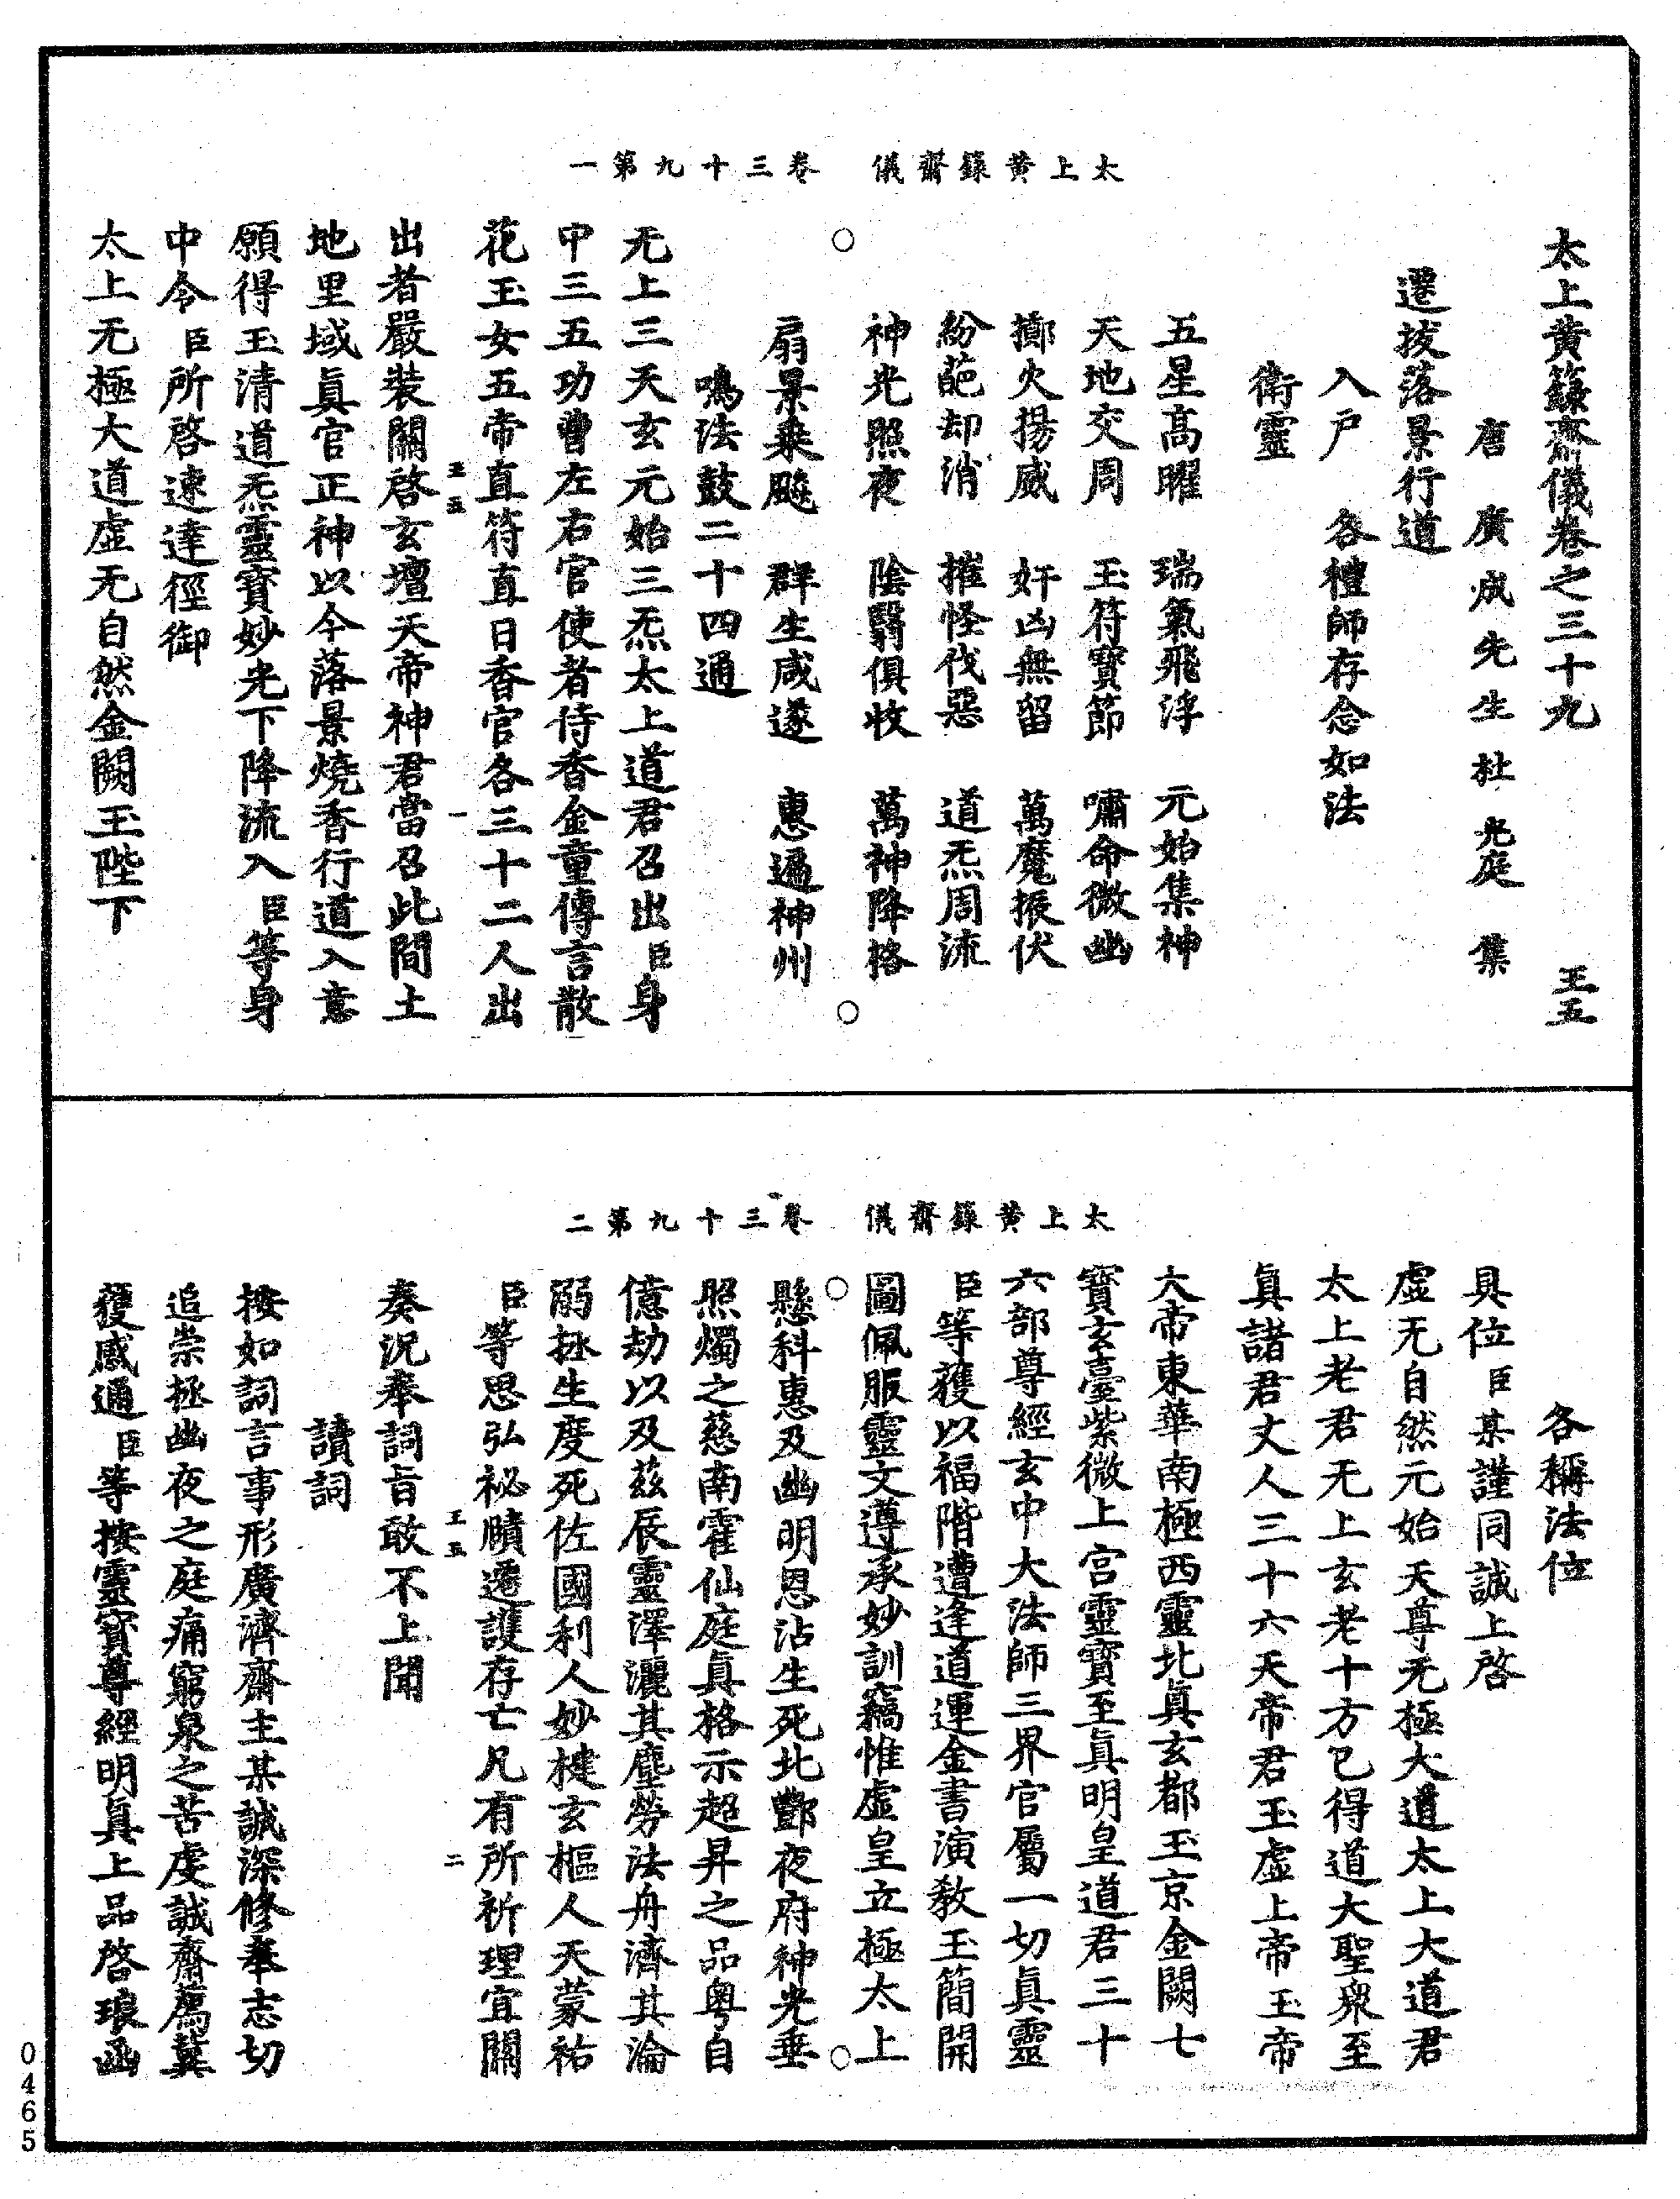 太上黃籙齋儀　卷三十九第一
太上黃籙齋儀卷之三十九　王五
唐廣成先生杜光庭集
遷拔落景行道
入戶　各禮師存念如法
衛靈
五星高曜　瑞氣飛浮　元始集神
天地交周　玉符寶節　嘯命微幽
擲火揚威　奸凶無留　萬魔振伏
紛葩却消　摧怪伐惡　道炁周流
神光照夜　陰翳俱收　萬神降格
扇景乘飈　群生咸遂　惠遍神州
鳴法鼓二十四通
无上三天玄元始三炁太上道君召出臣身
中三五功曹左右官使者侍香金童傳言散
花玉女五帝直符直日香官各三十二人出
王五　一
出者嚴裝關啓玄壇天帝神君當召此間土
地里域眞官正神以今落景燒香行道入意
願得玉清道炁靈寶妙光下降流入臣等身
中令臣所啓速達徑御
太上无極大道虛无自然金闕玉陛下
太上黃籙齋儀　卷三十九第二
各稱法位
具位臣某謹同誠上啓
虛无自然元始天尊无極大道太上大道君
太上老君无上玄老十方已得道大聖衆至
眞諸君丈人三十六天帝君玉虛上帝玉帝
大帝東華南極西靈北眞玄都玉京金闕七
寶玄臺紫微上宮靈寶至眞明皇道君三十
六部尊經玄中大法師三界官屬一切眞靈
臣等獲以福階遭逢道運金書演敎玉簡開
圖佩服靈文遵承妙訓竊惟虛皇立極太上
懸科惠及幽明恩沾生死北酆夜府神光垂
照燭之慈南霍仙庭眞格示超昇之品粵自
億劫以及茲辰靈澤灑其塵勞法舟濟其淪
溺拯生度死佐國利人妙楗玄樞人天蒙祐
臣等思弘祕賾遷護存亡凡有所祈理宜關
王五　二
奏況奉詞旨敢不上聞
讀詞
按如詞言事形廣濟齋主某誠深修奉志切
追崇拯幽夜之庭痛窮泉之苦虔誠齋薦冀
獲感通臣等按靈寶尊經明眞上品啓琅函
0465